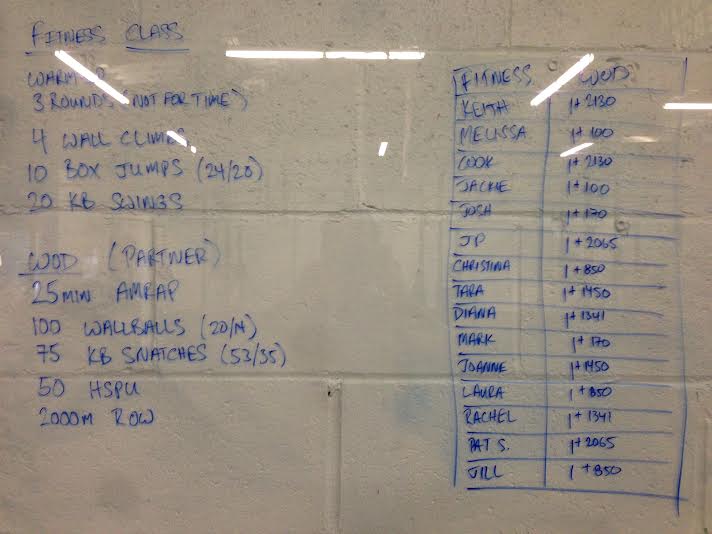 FITNESS CLASS
WARM-UP
3 ROUNDS (NOT FOR TIME)
4 WALL CLIMBS
10 BOX JUMPS (24/20)
20 KB SWINGS
WOD (PARTNER)
25 MIN AMRAP
100 WALLBALLS (20/14)
75 KB SNATCHES (53/35)
50 HSPU
2000m ROW
FITNESS WOD
KEITH 1+2130
MELISSA 1+100
COOK 1+2130
JACKIE 1+100
JOSH 1+170
JP 1+2065
CHRISTINA 1+850
TARA 1+1450
DIANA 1+1341
MARK 1+170
JOANNE 1+1450
LAURA 1+850
RACHEL 1+1341
PAT S. 1+2065
JILL 1+850